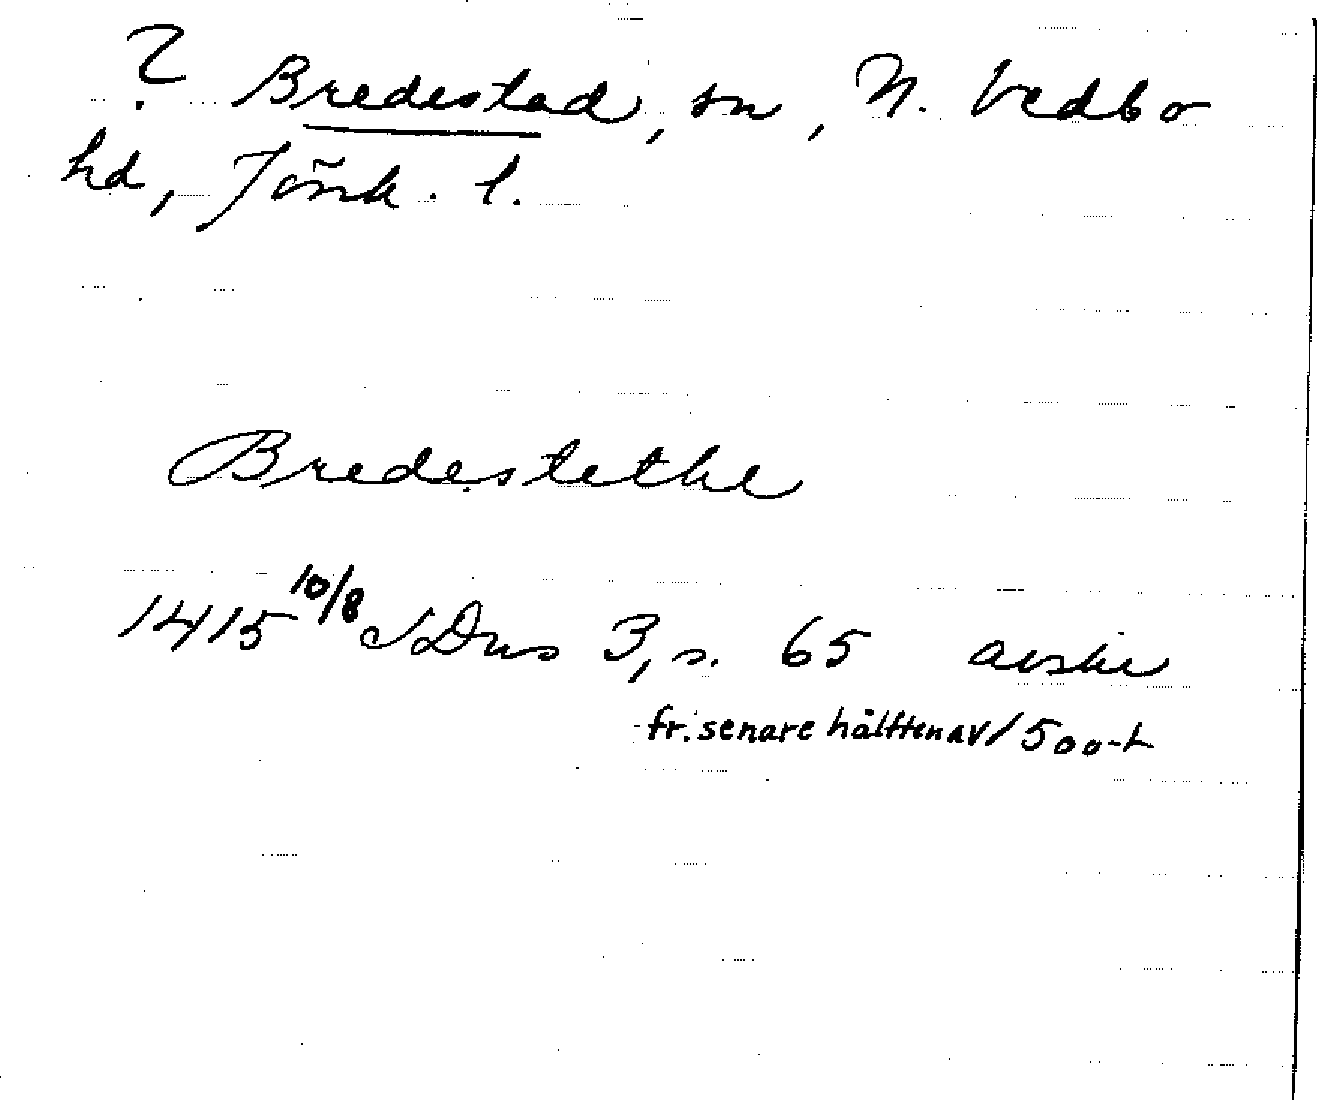 ? Bredestad, sn, N. Vedbo
hd, Jönk. l.
Bredestethe
1415 10/8 SDns 3, s. 65 avskr
fr. senare hälften av 1500-t